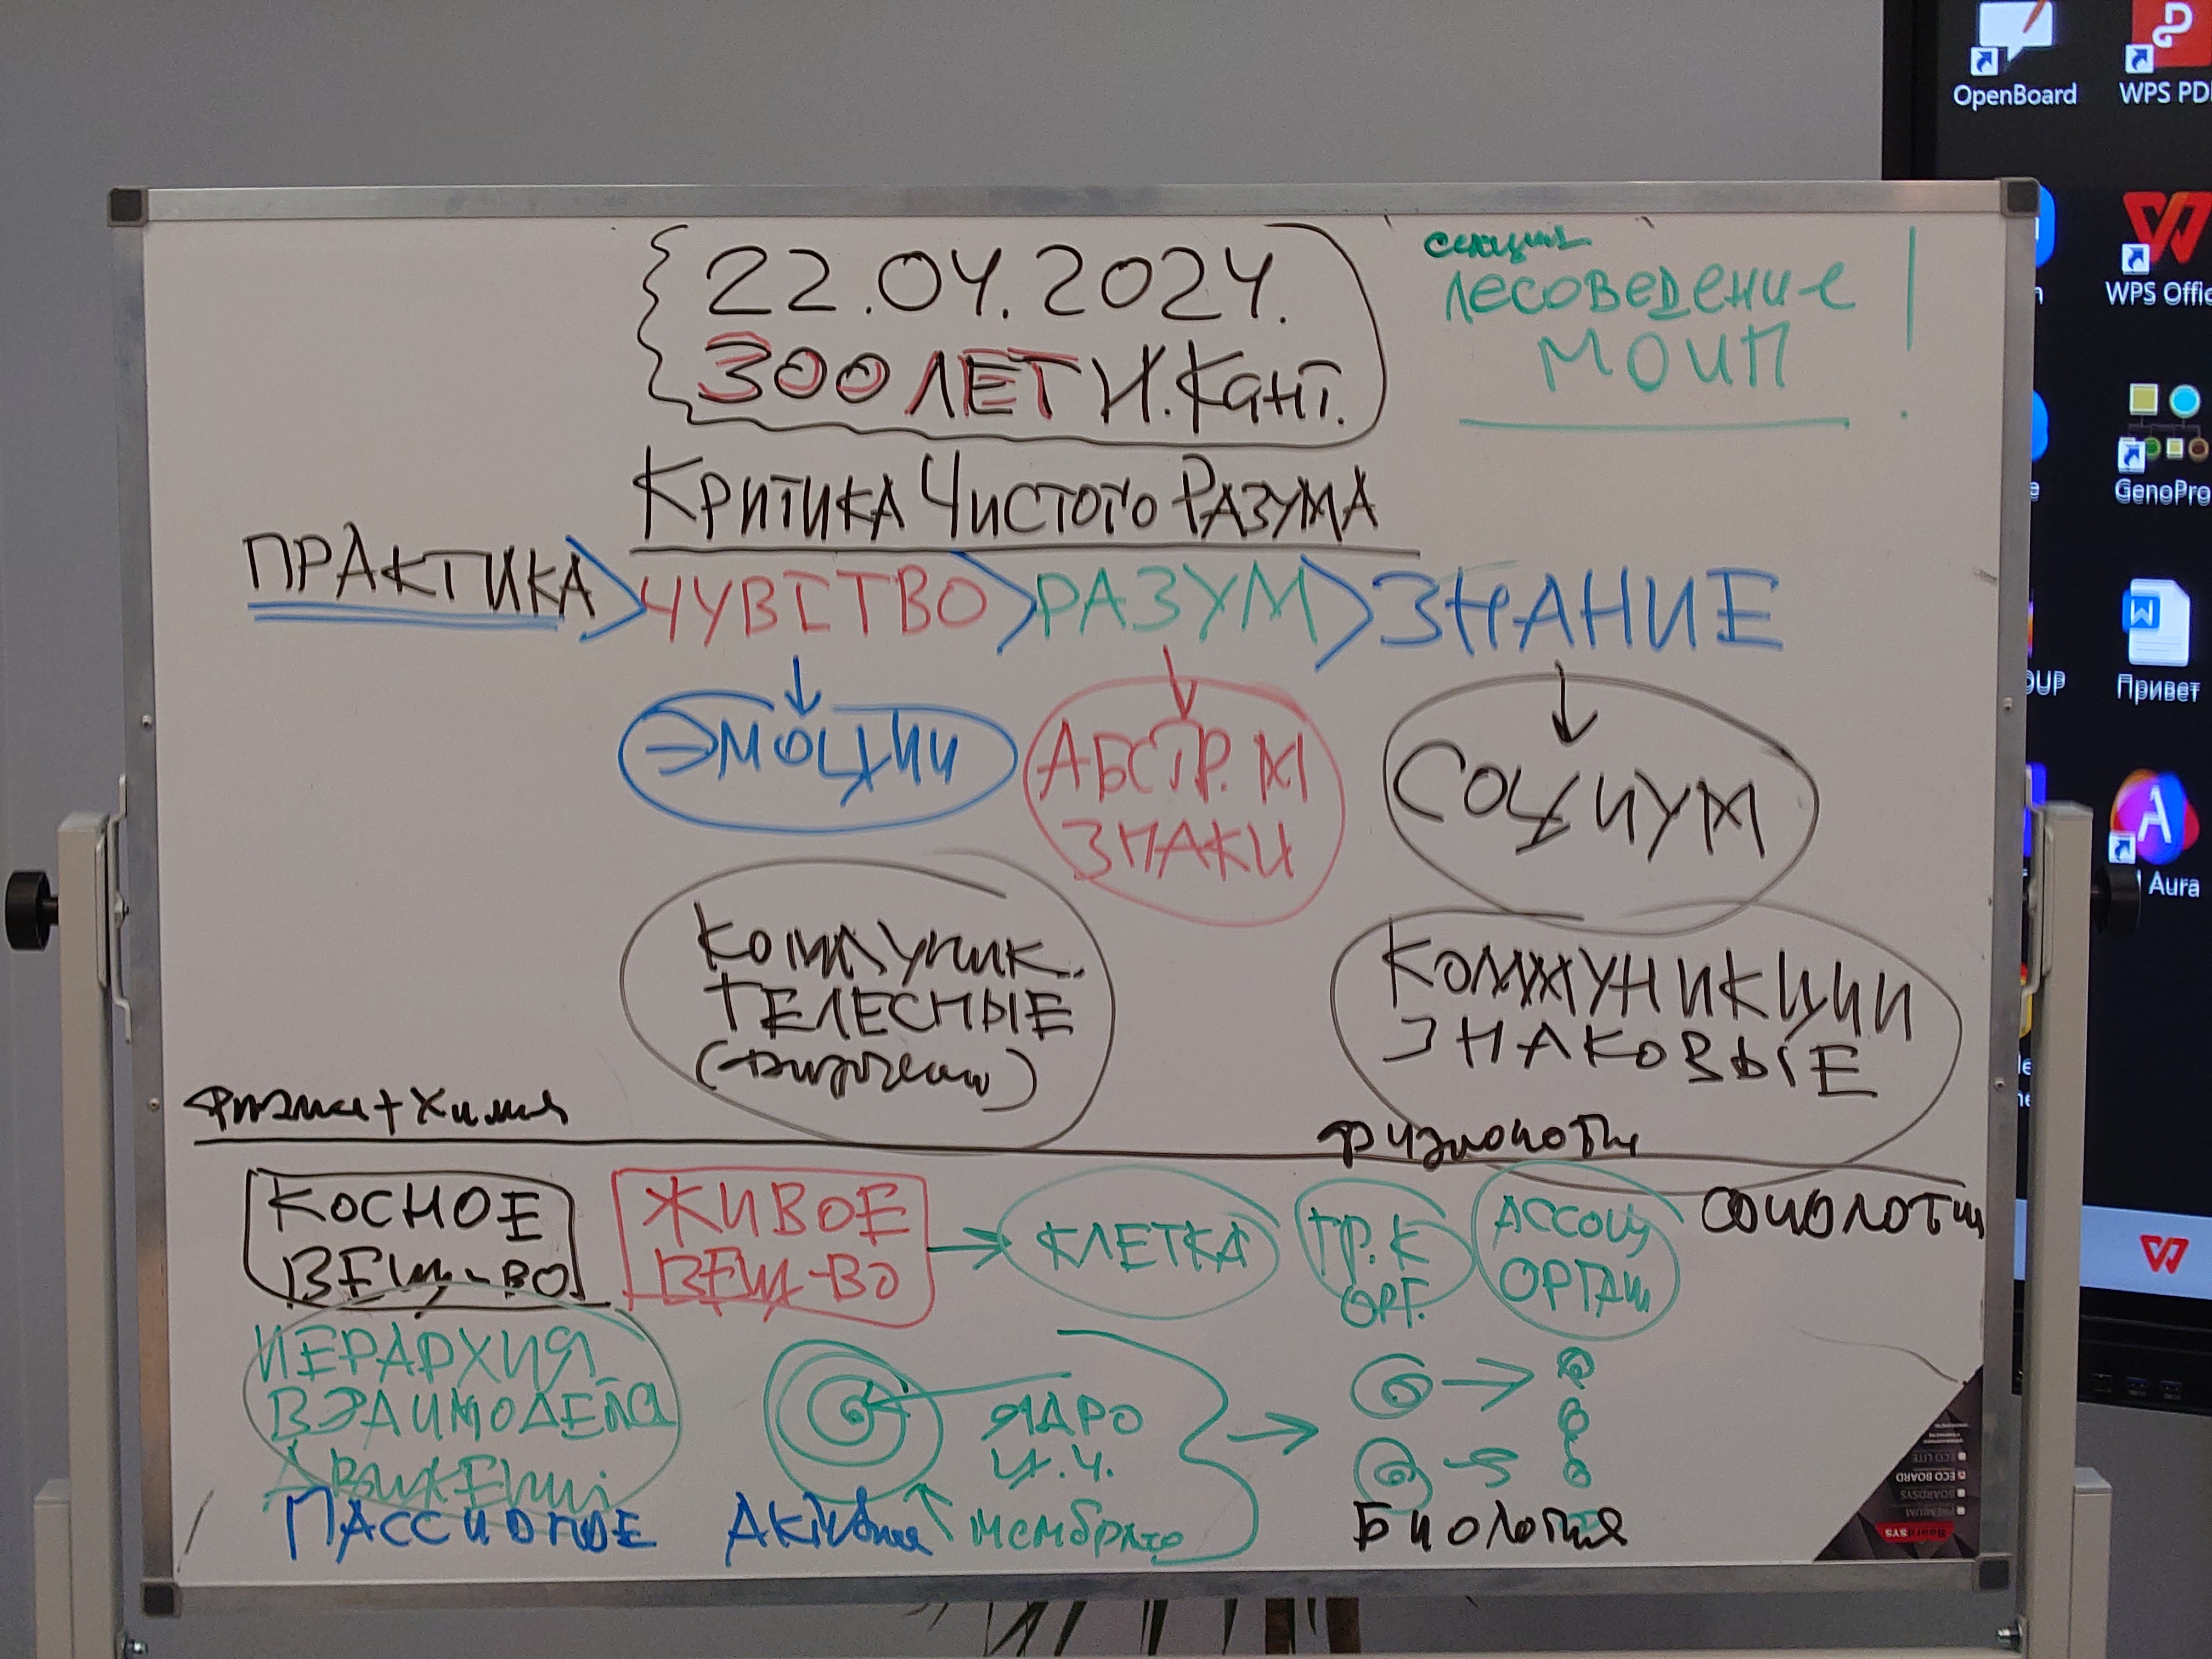 22.04.2024.
300 ЛЕТ И. Кант.
секция
лесоведение !
МОИП
Критика Чистого Разума
ПРАКТИКА > ЧУВСТВО > РАЗУМ > ЗНАНИЕ
ЭМОЦИИ
АБСТР. М
ЗНАКИ
СОЦИУМ
Коммуник.
ТЕЛЕСНЫЕ
КОММУНИКЦИИ
ЗНАКОВЫЕ
физика + химия
физиология
КОСНОЕ
ВЕЩ-ВО
ЖИВОЕ
ВЕЩ-ВО
КЛЕТКА
ГР. К
ОРГ.
АССОЦ
ОРГАН
социология
ИЕРАРХИЯ
ВЗАИМОДЕЙСТ
ДВИЖЕНИЙ
ПАССИВНОЕ
ЯДРО
Ц.Ч.
Активное
мембрана
Биология
OpenBoard
WPS PD
WPS Offic
GenoPro
OUP
Привет
Aura
ECO LITE
ECO BOARD
BOARDSYS
PREMIUM
BoardSYS